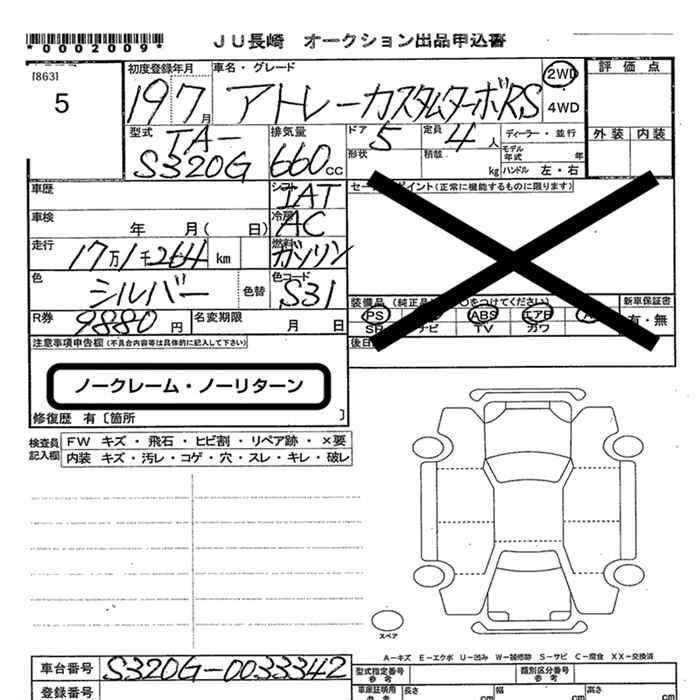 JU長崎 オークション出品申込書
*0002009*
[863]
5
初度登録年月
19 7月
車名・グレード
アトレーカスタムターボRS
2WD
4WD
評価点
外装 内装
型式
TA-
S320G
排気量
660cc
ドア 5
定員 4人
ディーラー・並行
形状
積載 kg
モデル年式 年
ハンドル 左・右
車歴
シフト
IAT
セールスポイント(正常に機能するものに限ります)
車検 年 月( 日)
冷房
AC
走行
17万1千264 km
燃料
ガソリン
色
シルバー
色替
色コード
S31
装備品(純正品に○をつけてください)
新車保証書
PS ABS エアB
有・無
SR ナビ TV カワ
R券
9880円
名変期限 月 日
後日
注意事項申告欄(不具合内容等は具体的に記入して下さい)
ノークレーム・ノーリターン
修復歴 有〔箇所 〕
検査員記入欄
FW キズ・飛石・ヒビ割・リペア跡・×要
内装 キズ・汚レ・コゲ・穴・スレ・キレ・破レ
スペア
A-キズ E-エクボ U-凹み W-補修跡 S-サビ C-腐食 XX-交換済
車台番号
S320G-0033342
型式指定番号 参考
類別区分番号 参考
登録番号
車庫証明用 参考
長さ cm
幅 cm
高さ cm